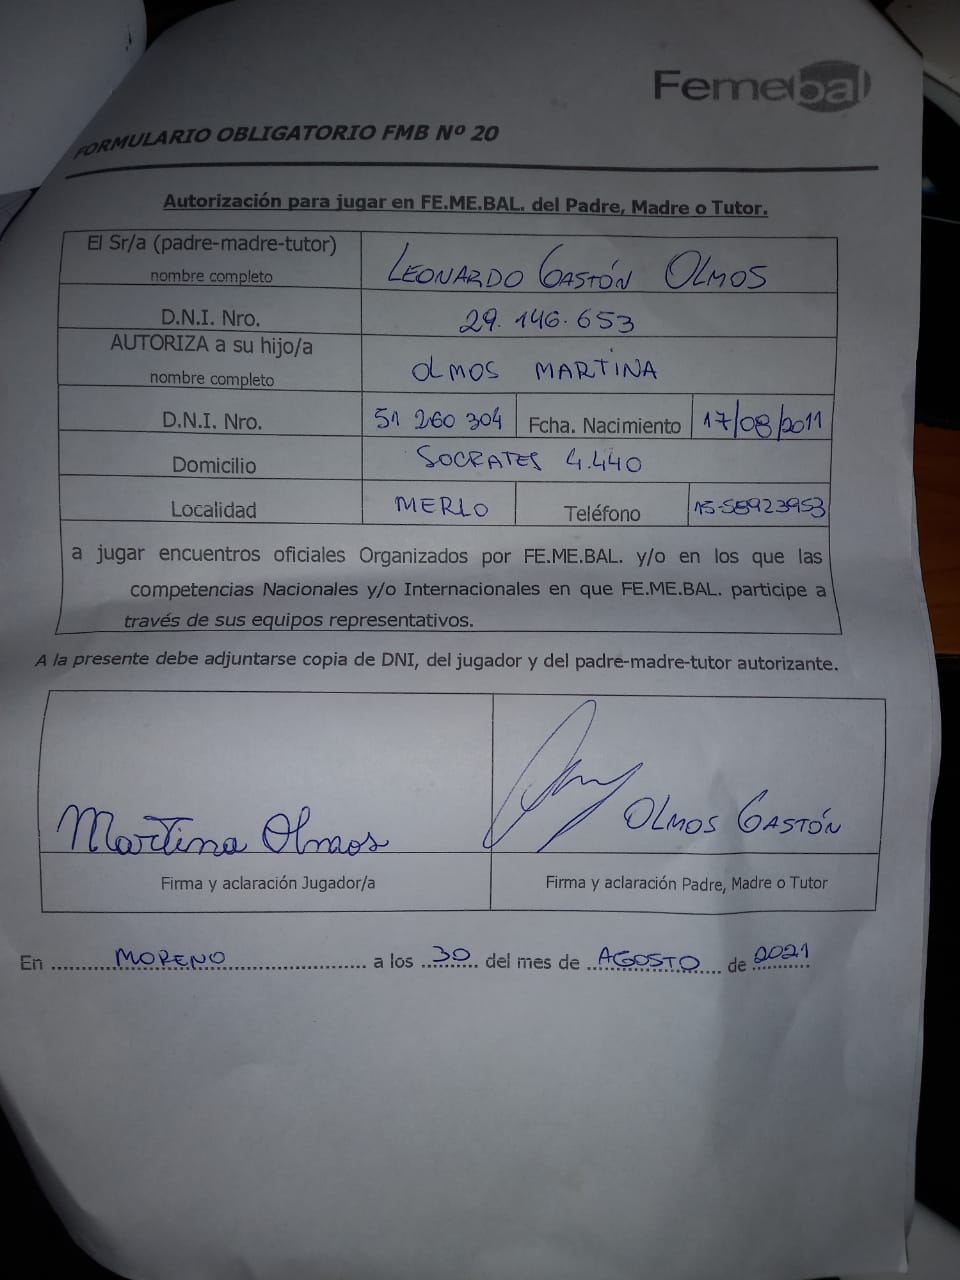 Femebal
FORMULARIO OBLIGATORIO FMB Nº 20
Autorización para jugar en FE.ME.BAL. del Padre, Madre o Tutor.
El Sr/a (padre-madre-tutor)
nombre completo
LEONARDO GASTÓN OLMOS
D.N.I. Nro.
29.146.653
AUTORIZA a su hijo/a
nombre completo
OLMOS MARTINA
D.N.I. Nro.
51 260 304
Fcha. Nacimiento
17/08/2011
Domicilio
SOCRATES 4.440
Localidad
MERLO
Teléfono
15-58923953
a jugar encuentros oficiales Organizados por FE.ME.BAL. y/o en los que las
competencias Nacionales y/o Internacionales en que FE.ME.BAL. participe a
través de sus equipos representativos.
A la presente debe adjuntarse copia de DNI, del jugador y del padre-madre-tutor autorizante.
Martina Olmos
OLMOS GASTÓN
Firma y aclaración Jugador/a
Firma y aclaración Padre, Madre o Tutor
En MORENO a los 30 del mes de AGOSTO de 2021